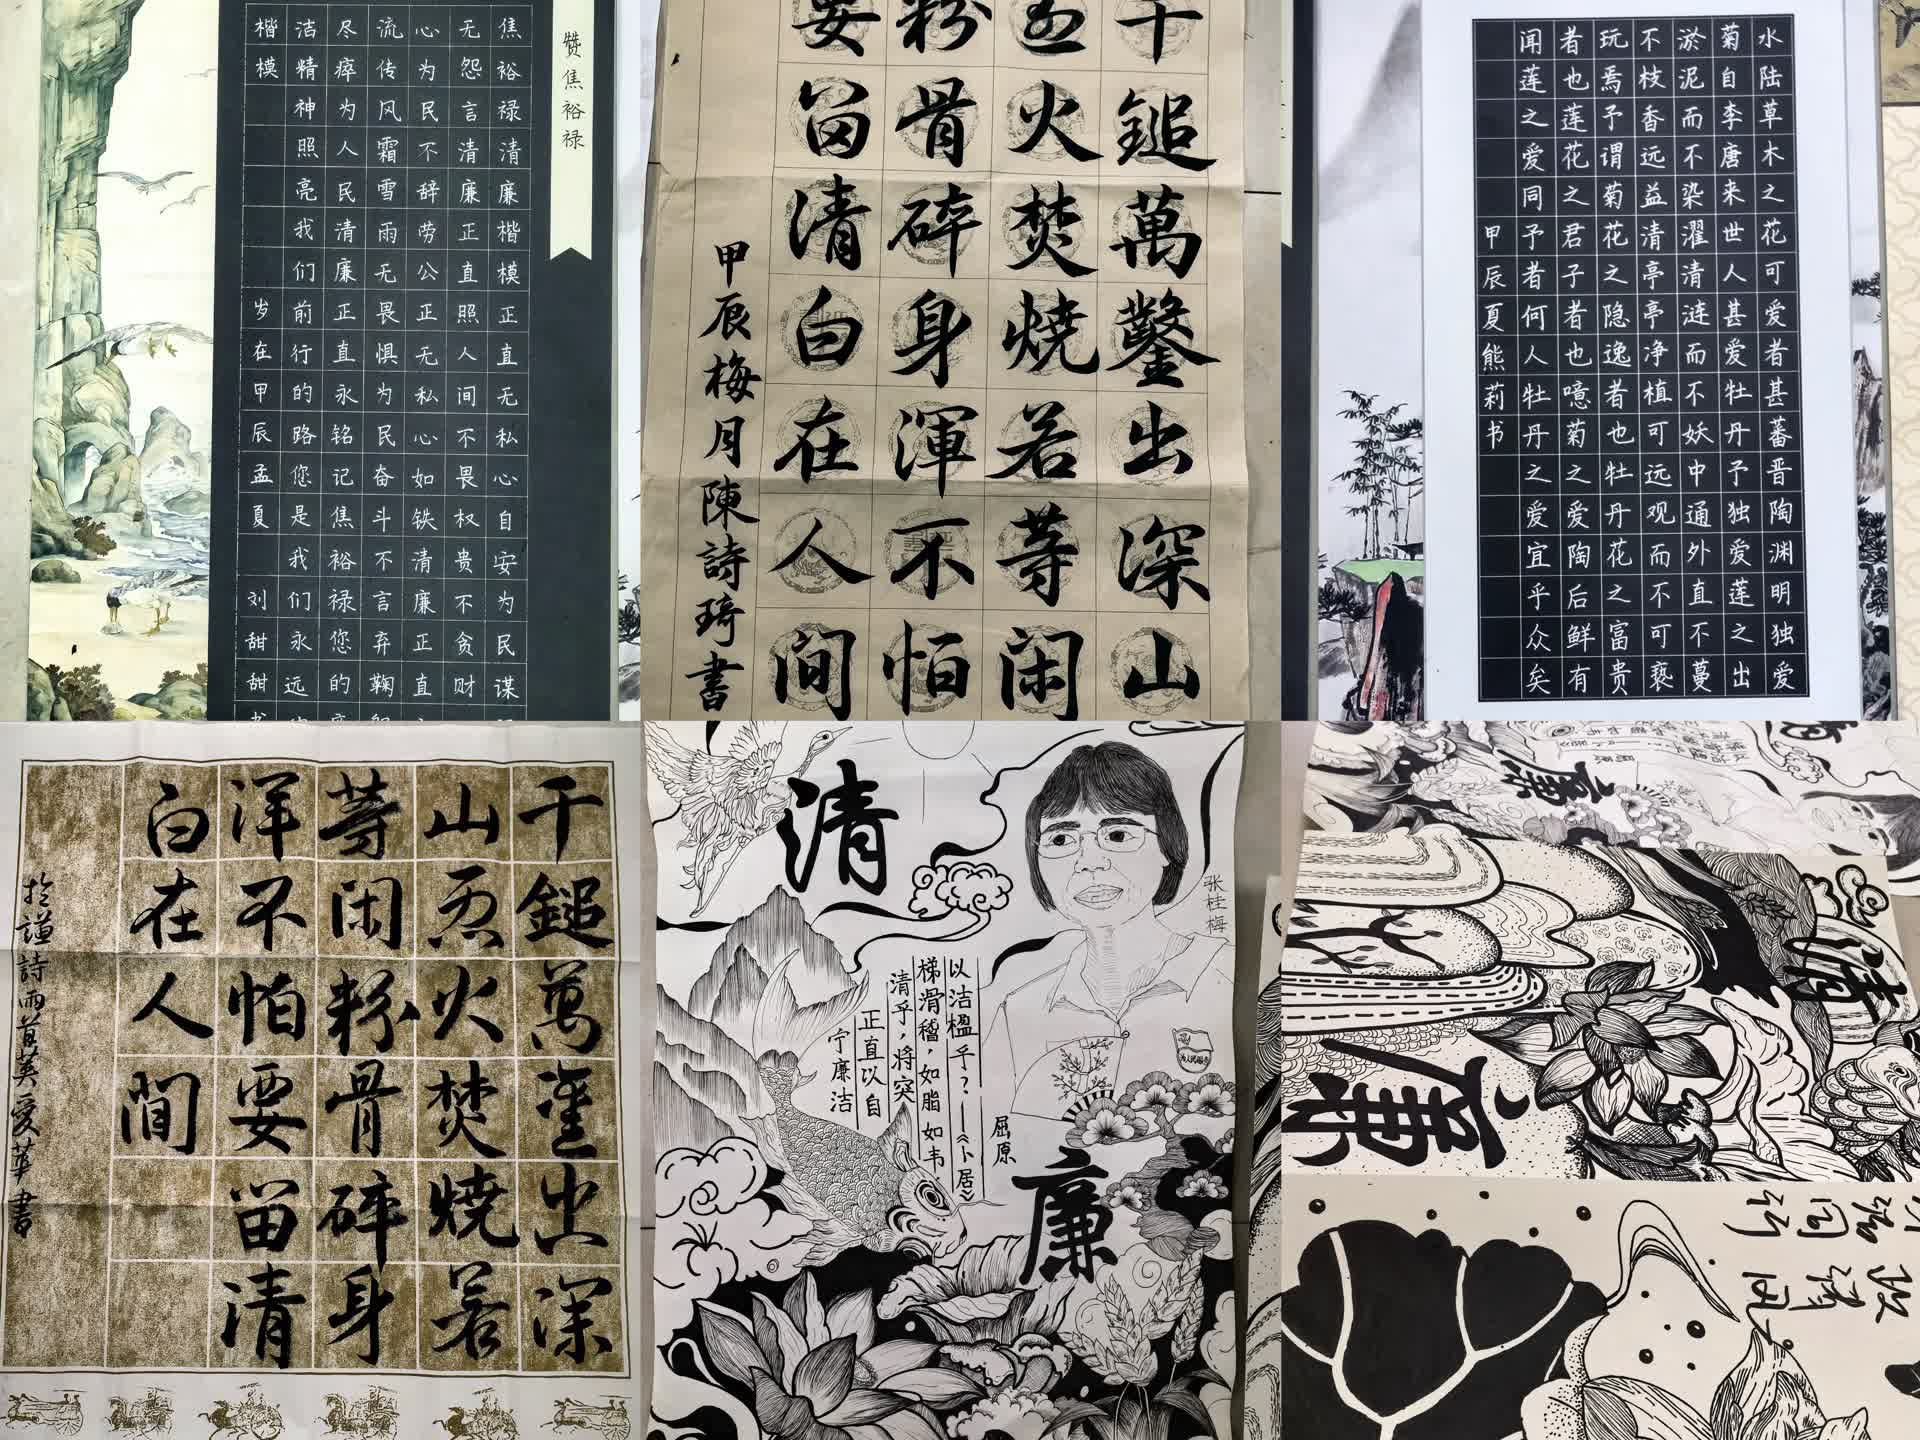 赞焦裕禄
焦裕禄清廉楷模正直无私心自安为民谋
无怨言清廉正直照人间不畏权贵不贪财
心为民不辞劳公正无私心如铁清廉正直
流传风霜雪雨无畏惧为民奋斗不言弃鞠
尽瘁为人民清廉正直永铭记焦裕禄您的
洁精神照亮我们前行的路您是我们永远
楷模 岁在甲辰孟夏 刘甜甜
千鎚萬鑿出深山
火焚燒若等闲
粉骨碎身渾不怕
要留清白在人间
甲辰梅月陳詩琦書
水陆草木之花可爱者甚蕃晋陶渊明独爱
菊自李唐来世人甚爱牡丹予独爱莲之出
淤泥而不染濯清涟而不妖中通外直不蔓
不枝香远益清亭亭净植可远观而不可亵
玩焉予谓菊花之隐逸者也牡丹花之富贵
者也莲花之君子者也噫菊之爱陶后鲜有
闻莲之爱同予者何人牡丹之爱宜乎众矣
甲辰夏熊莉书
千鎚萬鑿出深
山烈火焚燒若
等闲粉骨碎身
渾不怕要留清
白在人間
於謙詩 愛華書
清
张桂梅
以洁楹乎?——《卜居》
梯滑稽，如脂如韦，
清乎，将突
正直以自
宁廉洁
屈原
为人民服务
廉
廉
清
廉